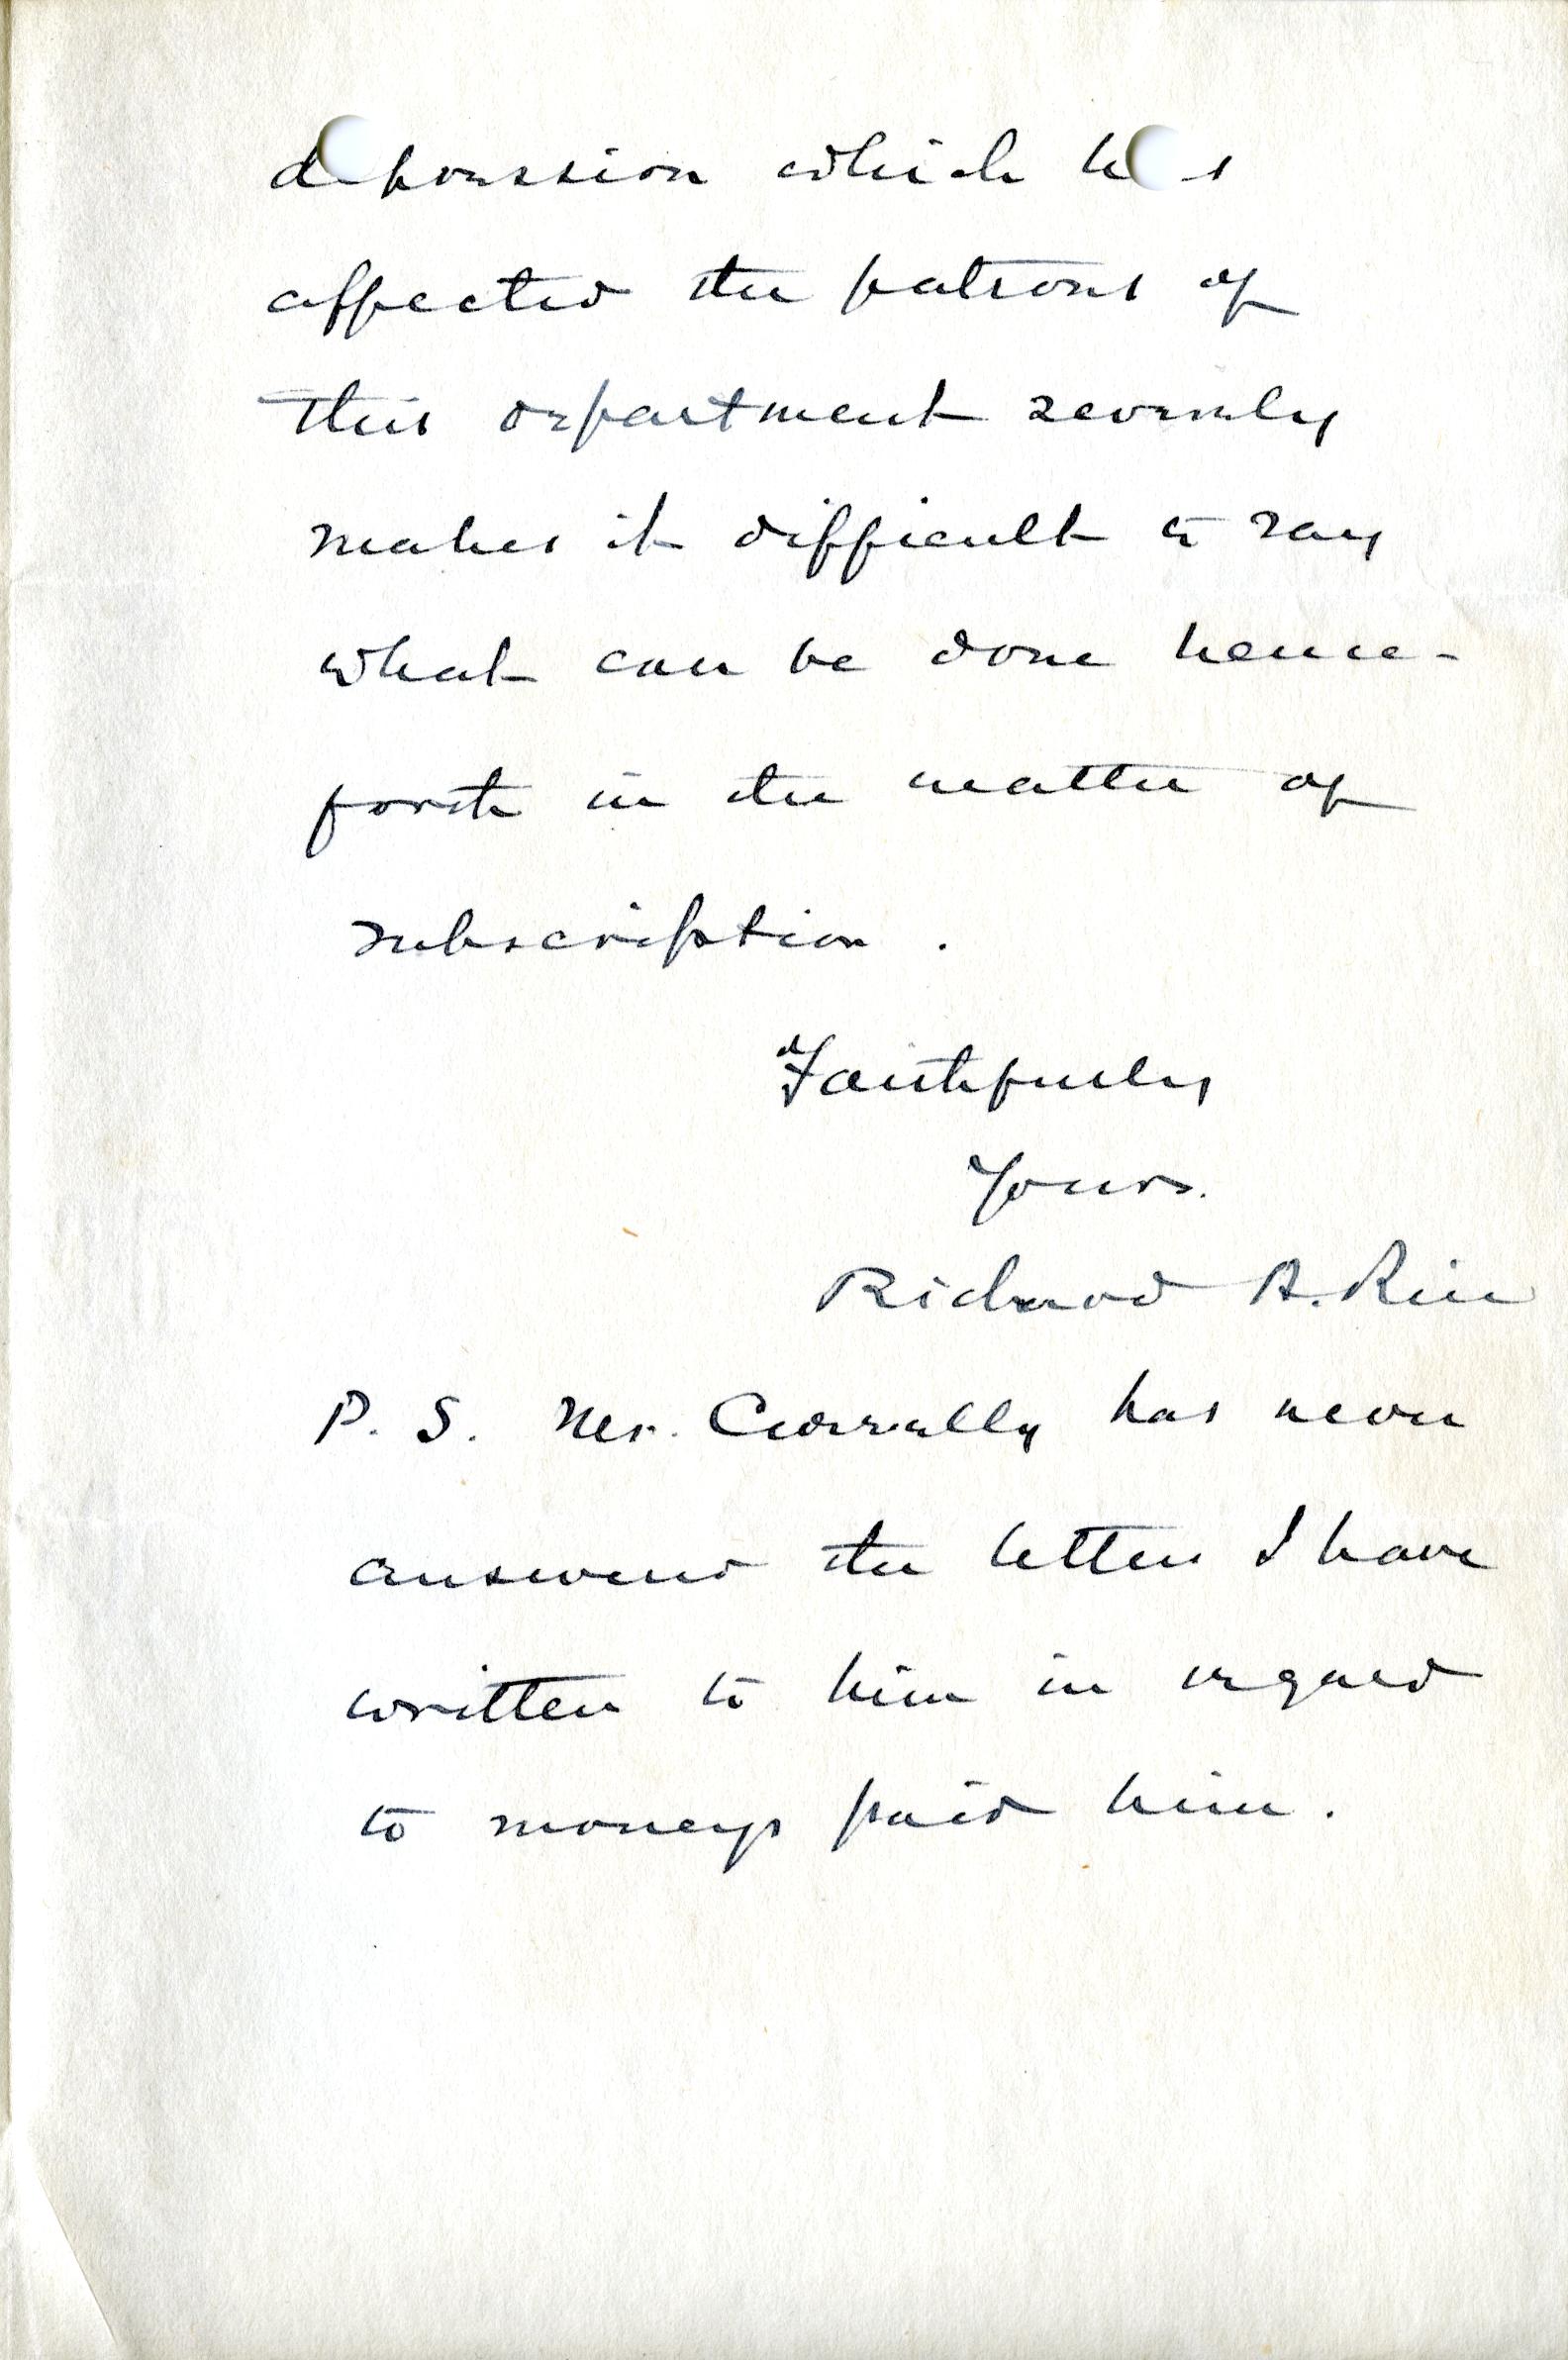 depression which has
affected the patrons of
this department severely
makes it difficult to say
what can be done hence-
forth in the matter of
subscription.
Faithfully
Yours.
Richard A. Rice
P. S. Mr. Currelly has never
answered the letters I have
written to him in regard
to moneys paid him.